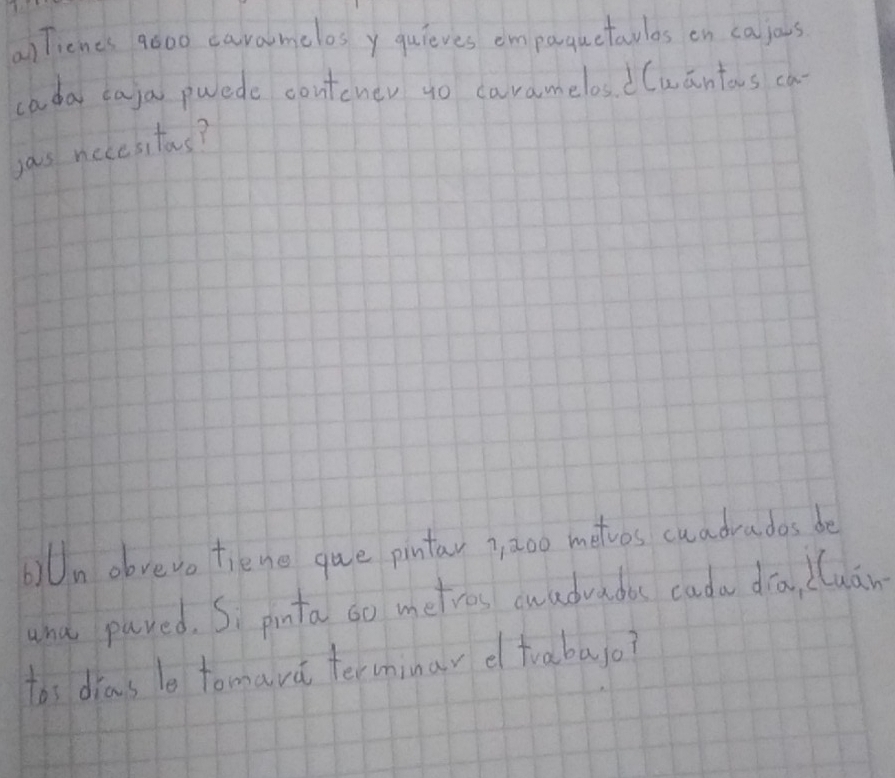 a) Tienes 9600 caramelos y quieres empaquetarlos en cajas
cada caja puede contener 40 caramelos. ¿Cuántas ca-
jas necesitas?
b) Un obrero tiene que pintar 7,200 metros cuadrados de
una pared. Si pinta 60 metros cuadrados cada día, ¿Cuán-
tos días le tomará terminar el trabajo?